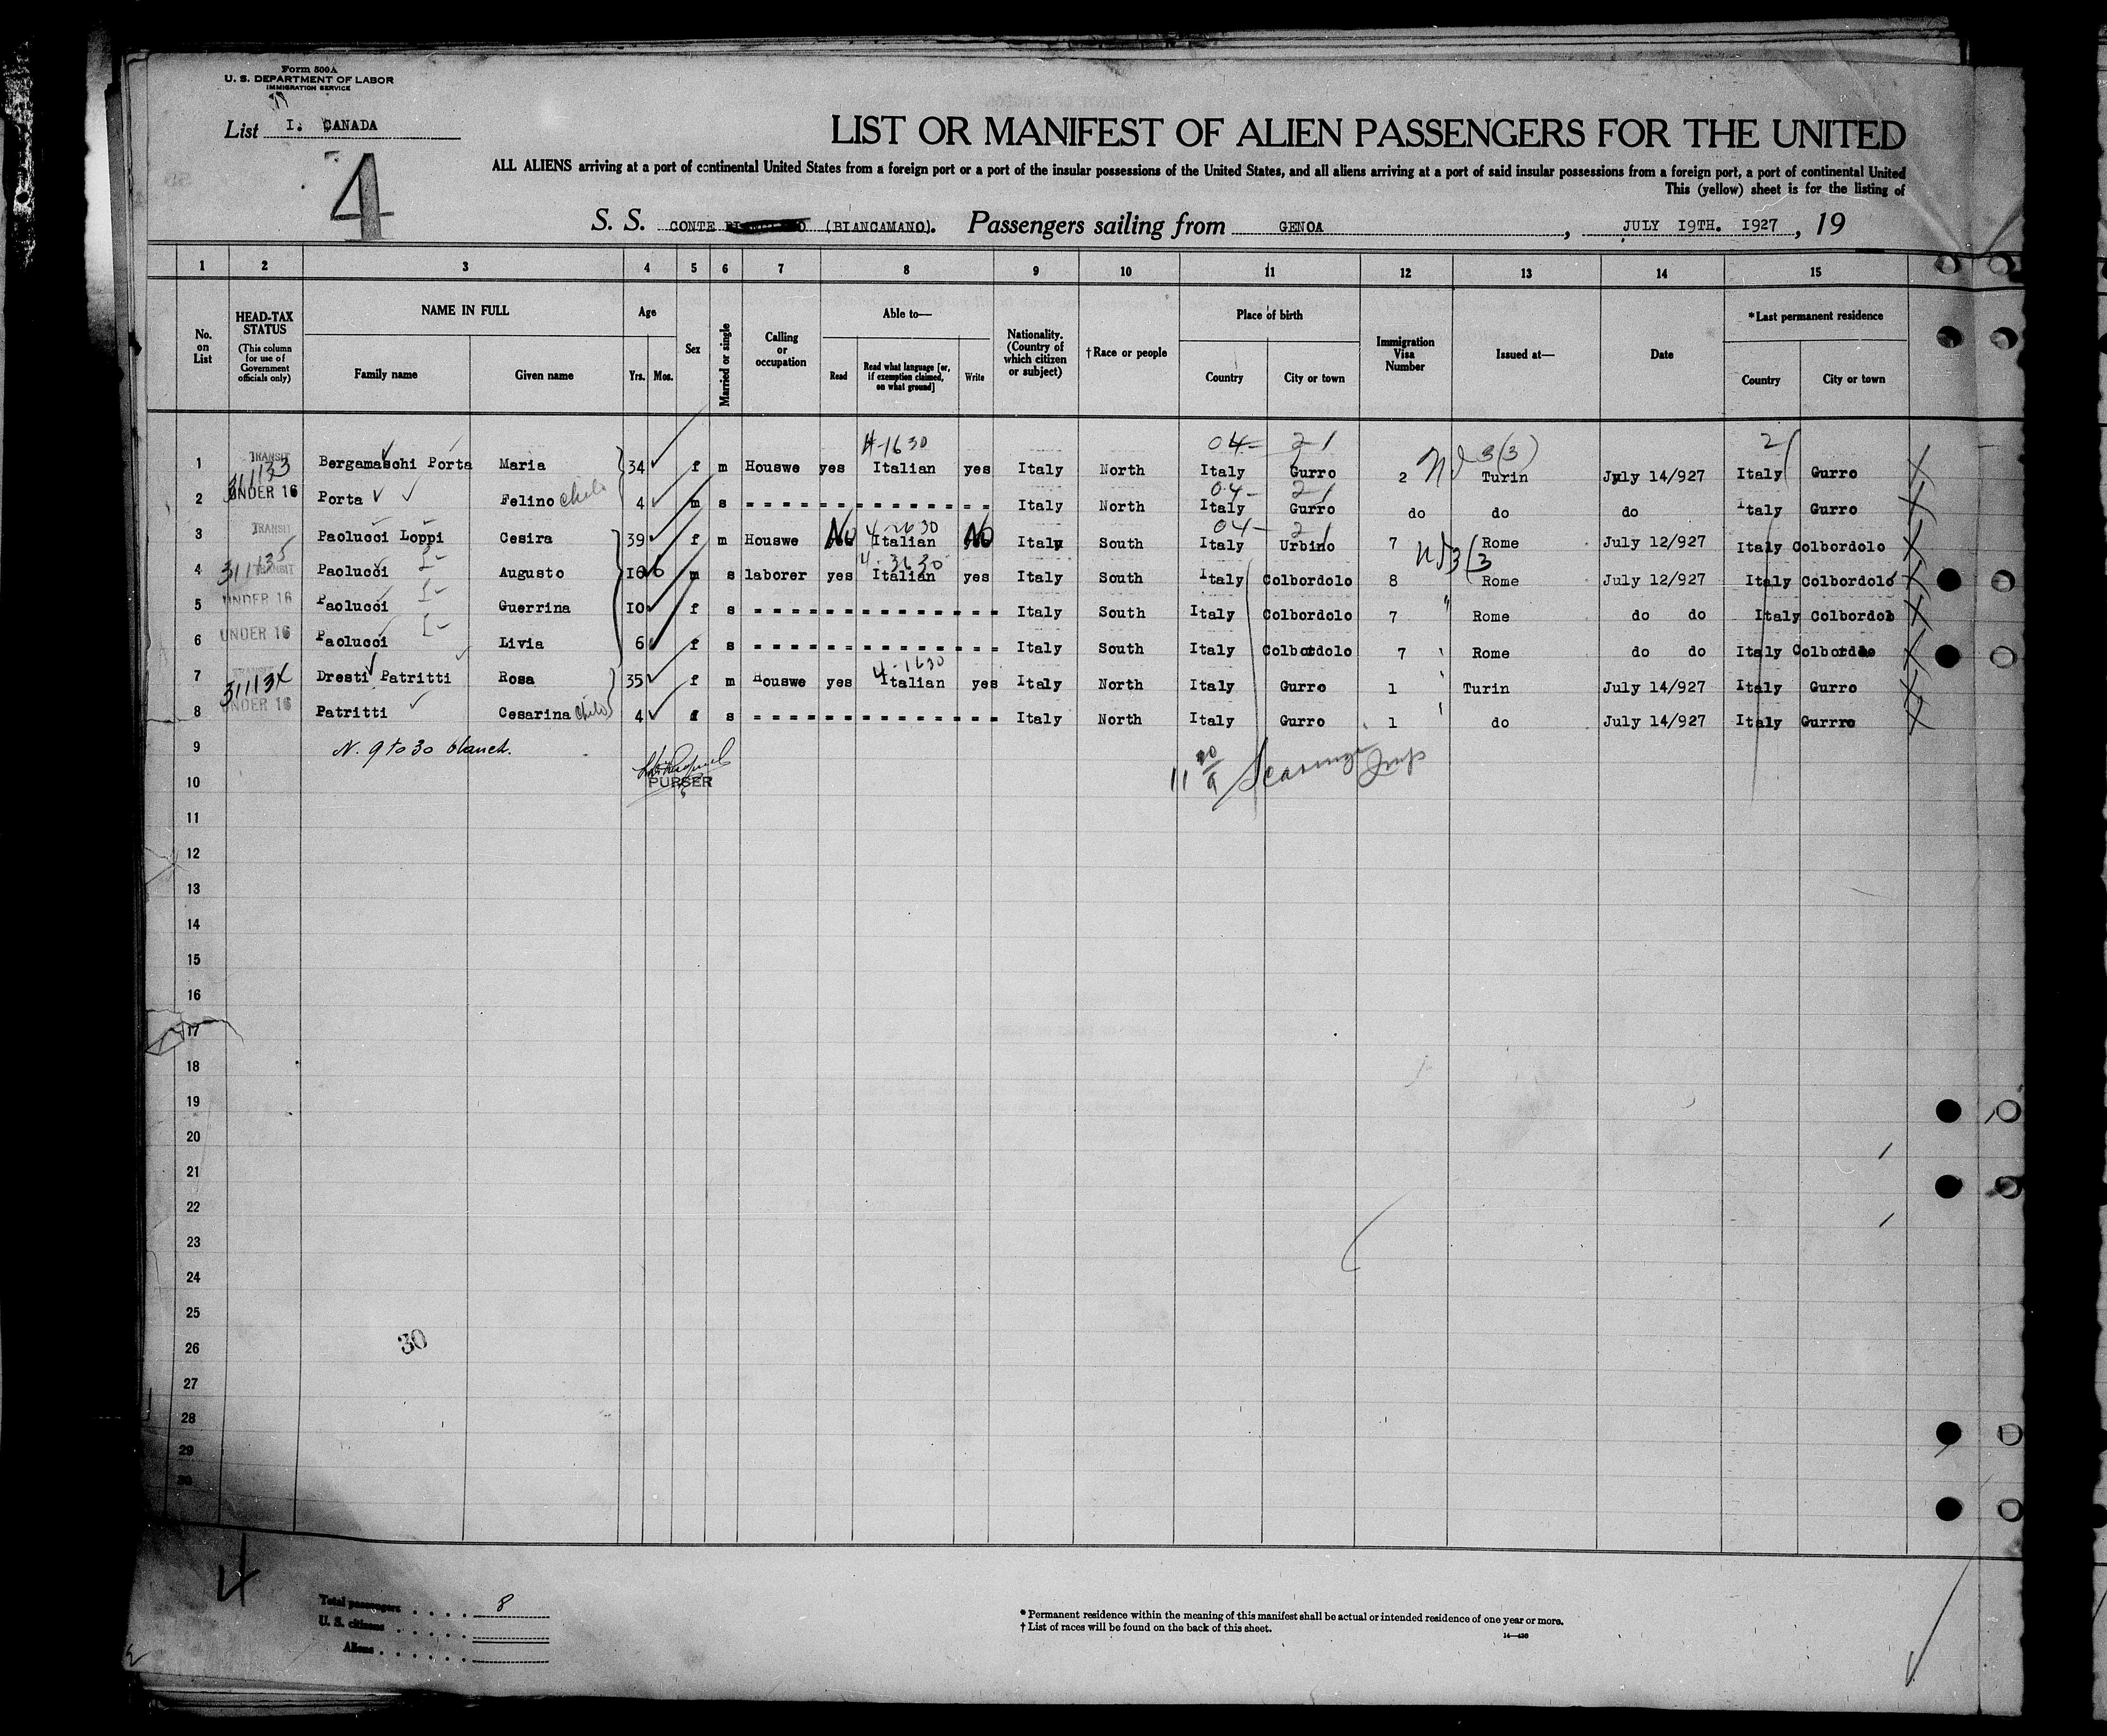 Form 500A
U. S. DEPARTMENT OF LABOR
IMMIGRATION SERVICE
List I. CANADA
4
LIST OR MANIFEST OF ALIEN PASSENGERS FOR THE UNITED
ALL ALIENS arriving at a port of continental United States from a foreign port or a port of the insular possessions of the United States, and all aliens arriving at a port of said insular possessions from a foreign port, a port of continental United
This (yellow) sheet is for the listing of
S. S. CONTE (BIANCAMANO). Passengers sailing from GENOA, JULY 19TH. 1927, 19
1 2 3 4 5 6 7 8 9 10 11 12 13 14 15
No. on List
HEAD-TAX STATUS
(This column for use of Government officials only)
NAME IN FULL
Family name Given name
Age
Yrs. Mos.
Sex
Married or single
Calling or occupation
Able to—
Read Read what language [or, if exemption claimed, on what ground] Write
Nationality. (Country of which citizen or subject)
†Race or people
Place of birth
Country City or town
Immigration Visa Number
Issued at—
Date
*Last permanent residence
Country City or town
4-1630 04- 21 3(3) 21
1 TRANSIT 311133 Bergamaschi Porta Maria 34 f m Houswe yes Italian yes Italy North Italy Gurro 2 Turin July 14/927 Italy Gurro
04- 21
2 UNDER 16 Porta Felino child 4 m s Italy North Italy Gurro do do do Italy Gurro
4-2630 04- 21
3 TRANSIT Paolucci Loppi Cesira 39 f m Houswe No Italian No Italy South Italy Urbino 7 Rome July 12/927 Italy Colbordolo
4-3630 3(3
4 311135 TRANSIT Paolucci Augusto 16 m s laborer yes Italian yes Italy South Italy Colbordolo 8 Rome July 12/927 Italy Colbordolo
5 UNDER 16 Paolucci Guerrina IO f s Italy South Italy Colbordolo 7 " Rome do do Italy Colbordolo
6 UNDER 16 Paolucci Livia 6 f s Italy South Italy Colbordolo 7 Rome do do Italy Colbordolo
4-1630
7 TRANSIT Dresti Patritti Rosa 35 f m Houswe yes Italian yes Italy North Italy Gurro 1 Turin July 14/927 Italy Gurro
8 UNDER 16 Patritti Cesarina child 4 f s Italy North Italy Gurro 1 do July 14/927 Italy Gurrro
9 N. 9 to 30 blanch.
10 PURSER
11
12
13
14
15
16
17
18
19
20
21
22
23
24
25
26 30
27
28
29
30
Total passengers . . . . 8
U. S. citizens . . . . .
Aliens . . . . . .
* Permanent residence within the meaning of this manifest shall be actual or intended residence of one year or more.
† List of races will be found on the back of this sheet.